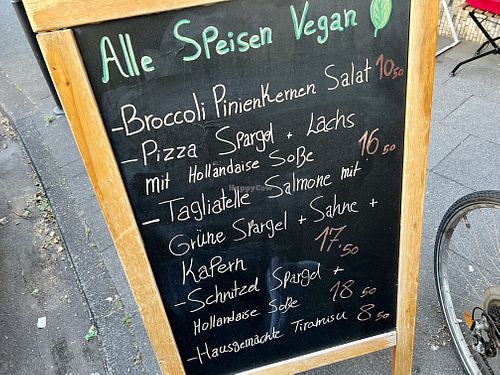 Alle Speisen Vegan
-Broccoli Pinienkernen Salat 10.50
-Pizza Spargel + Lachs
mit Hollandaise Soße 16.50
-Tagliatelle Salmone mit
Grüne Spargel + Sahne +
Kapern 17.50
-Schnitzel Spargel +
Hollandaise Soße 18.50
-Hausgemachte Tiramisu 8.50
HappyCow